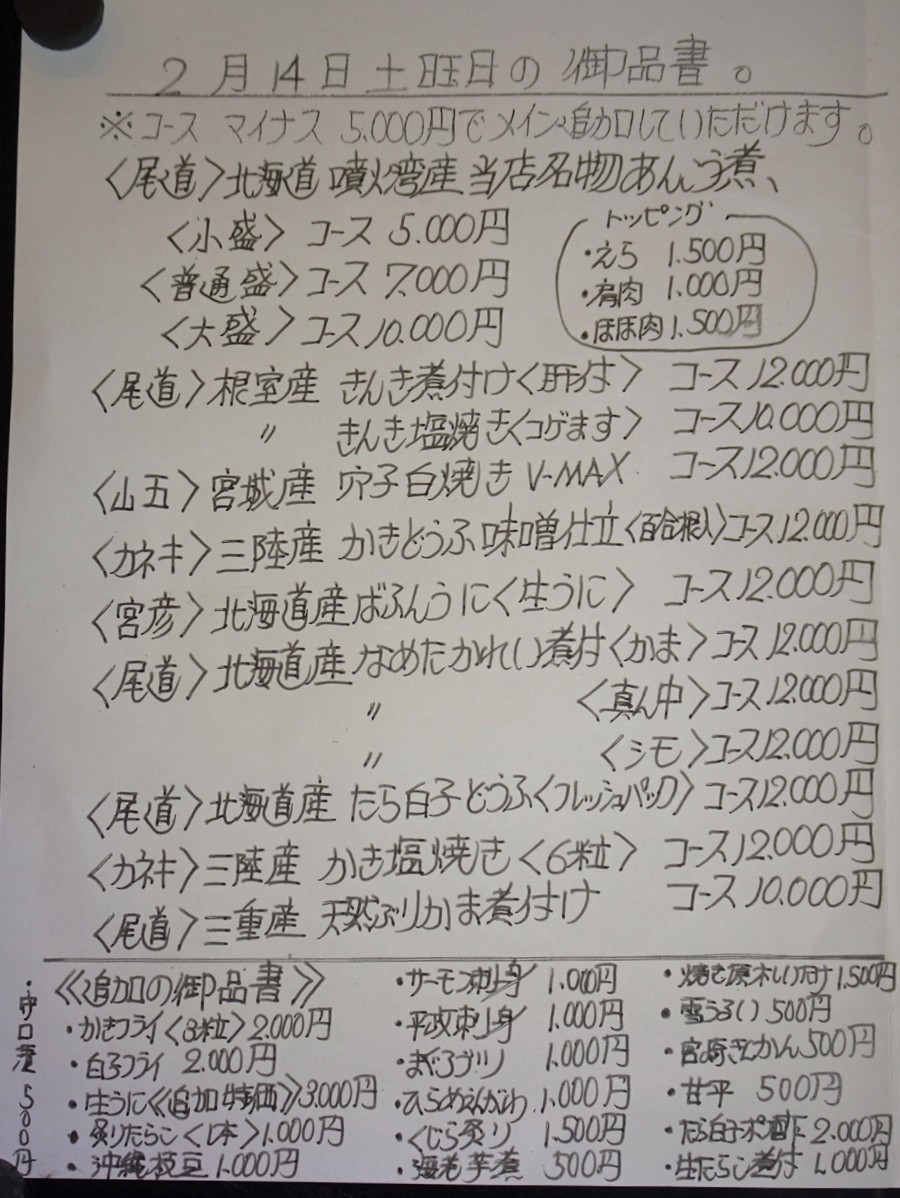 2月14日土曜日の御品書。
※コース マイナス 5.000円でメイン追加していただけます。
〈尾道〉北海道噴火湾産当店名物あんこう煮、
〈小盛〉コース 5.000円
〈普通盛〉コース 7.000円
〈大盛〉コース10.000円
トッピング
・えら 1.500円
・肩肉 1.000円
・ほほ肉1.500円
〈尾道〉根室産 きんき煮付け〈肝付〉 コース12.000円
〃 きんき塩焼き〈コゲます〉 コース10.000円
〈山五〉宮城産 穴子白焼き V-MAX コース12.000円
〈カネキ〉三陸産 かきどうふ味噌仕立〈百合根入〉コース12.000円
〈宮彦〉北海道産ばふんうに〈生うに〉 コース12.000円
〈尾道〉北海道産なめたかれい煮付〈かま〉コース12.000円
〃 〈真ん中〉コース12.000円
〃 〈シモ〉コース12.000円
〈尾道〉北海道産 たら白子どうふ〈フレッシュパック〉コース12.000円
〈カネキ〉三陸産 かき塩焼き〈6粒〉 コース12.000円
〈尾道〉三重産 天然ぶりかま煮付け コース10.000円
《追加の御品書》
・かきフライ〈3粒〉2.000円
・白子フライ 2.000円
・生うに《追加特価》3.000円
・炙りたらこ〈1本〉1.000円
・沖縄枝豆 1.000円
・サーモン刺身 1.000円
・平政刺身 1.000円
・まぐろブツ 1.000円
・ひらめえんがわ 1.000円
・くじら炙り 1.500円
・海老芋煮 500円
・焼き原木しいたけ 1.500円
・雪うるい 500円
・宮崎きんかん 500円
・甘平 500円
・たら白子ポン酢 2.000円
・生たらこ煮付 1.000円
・守口漬 500円